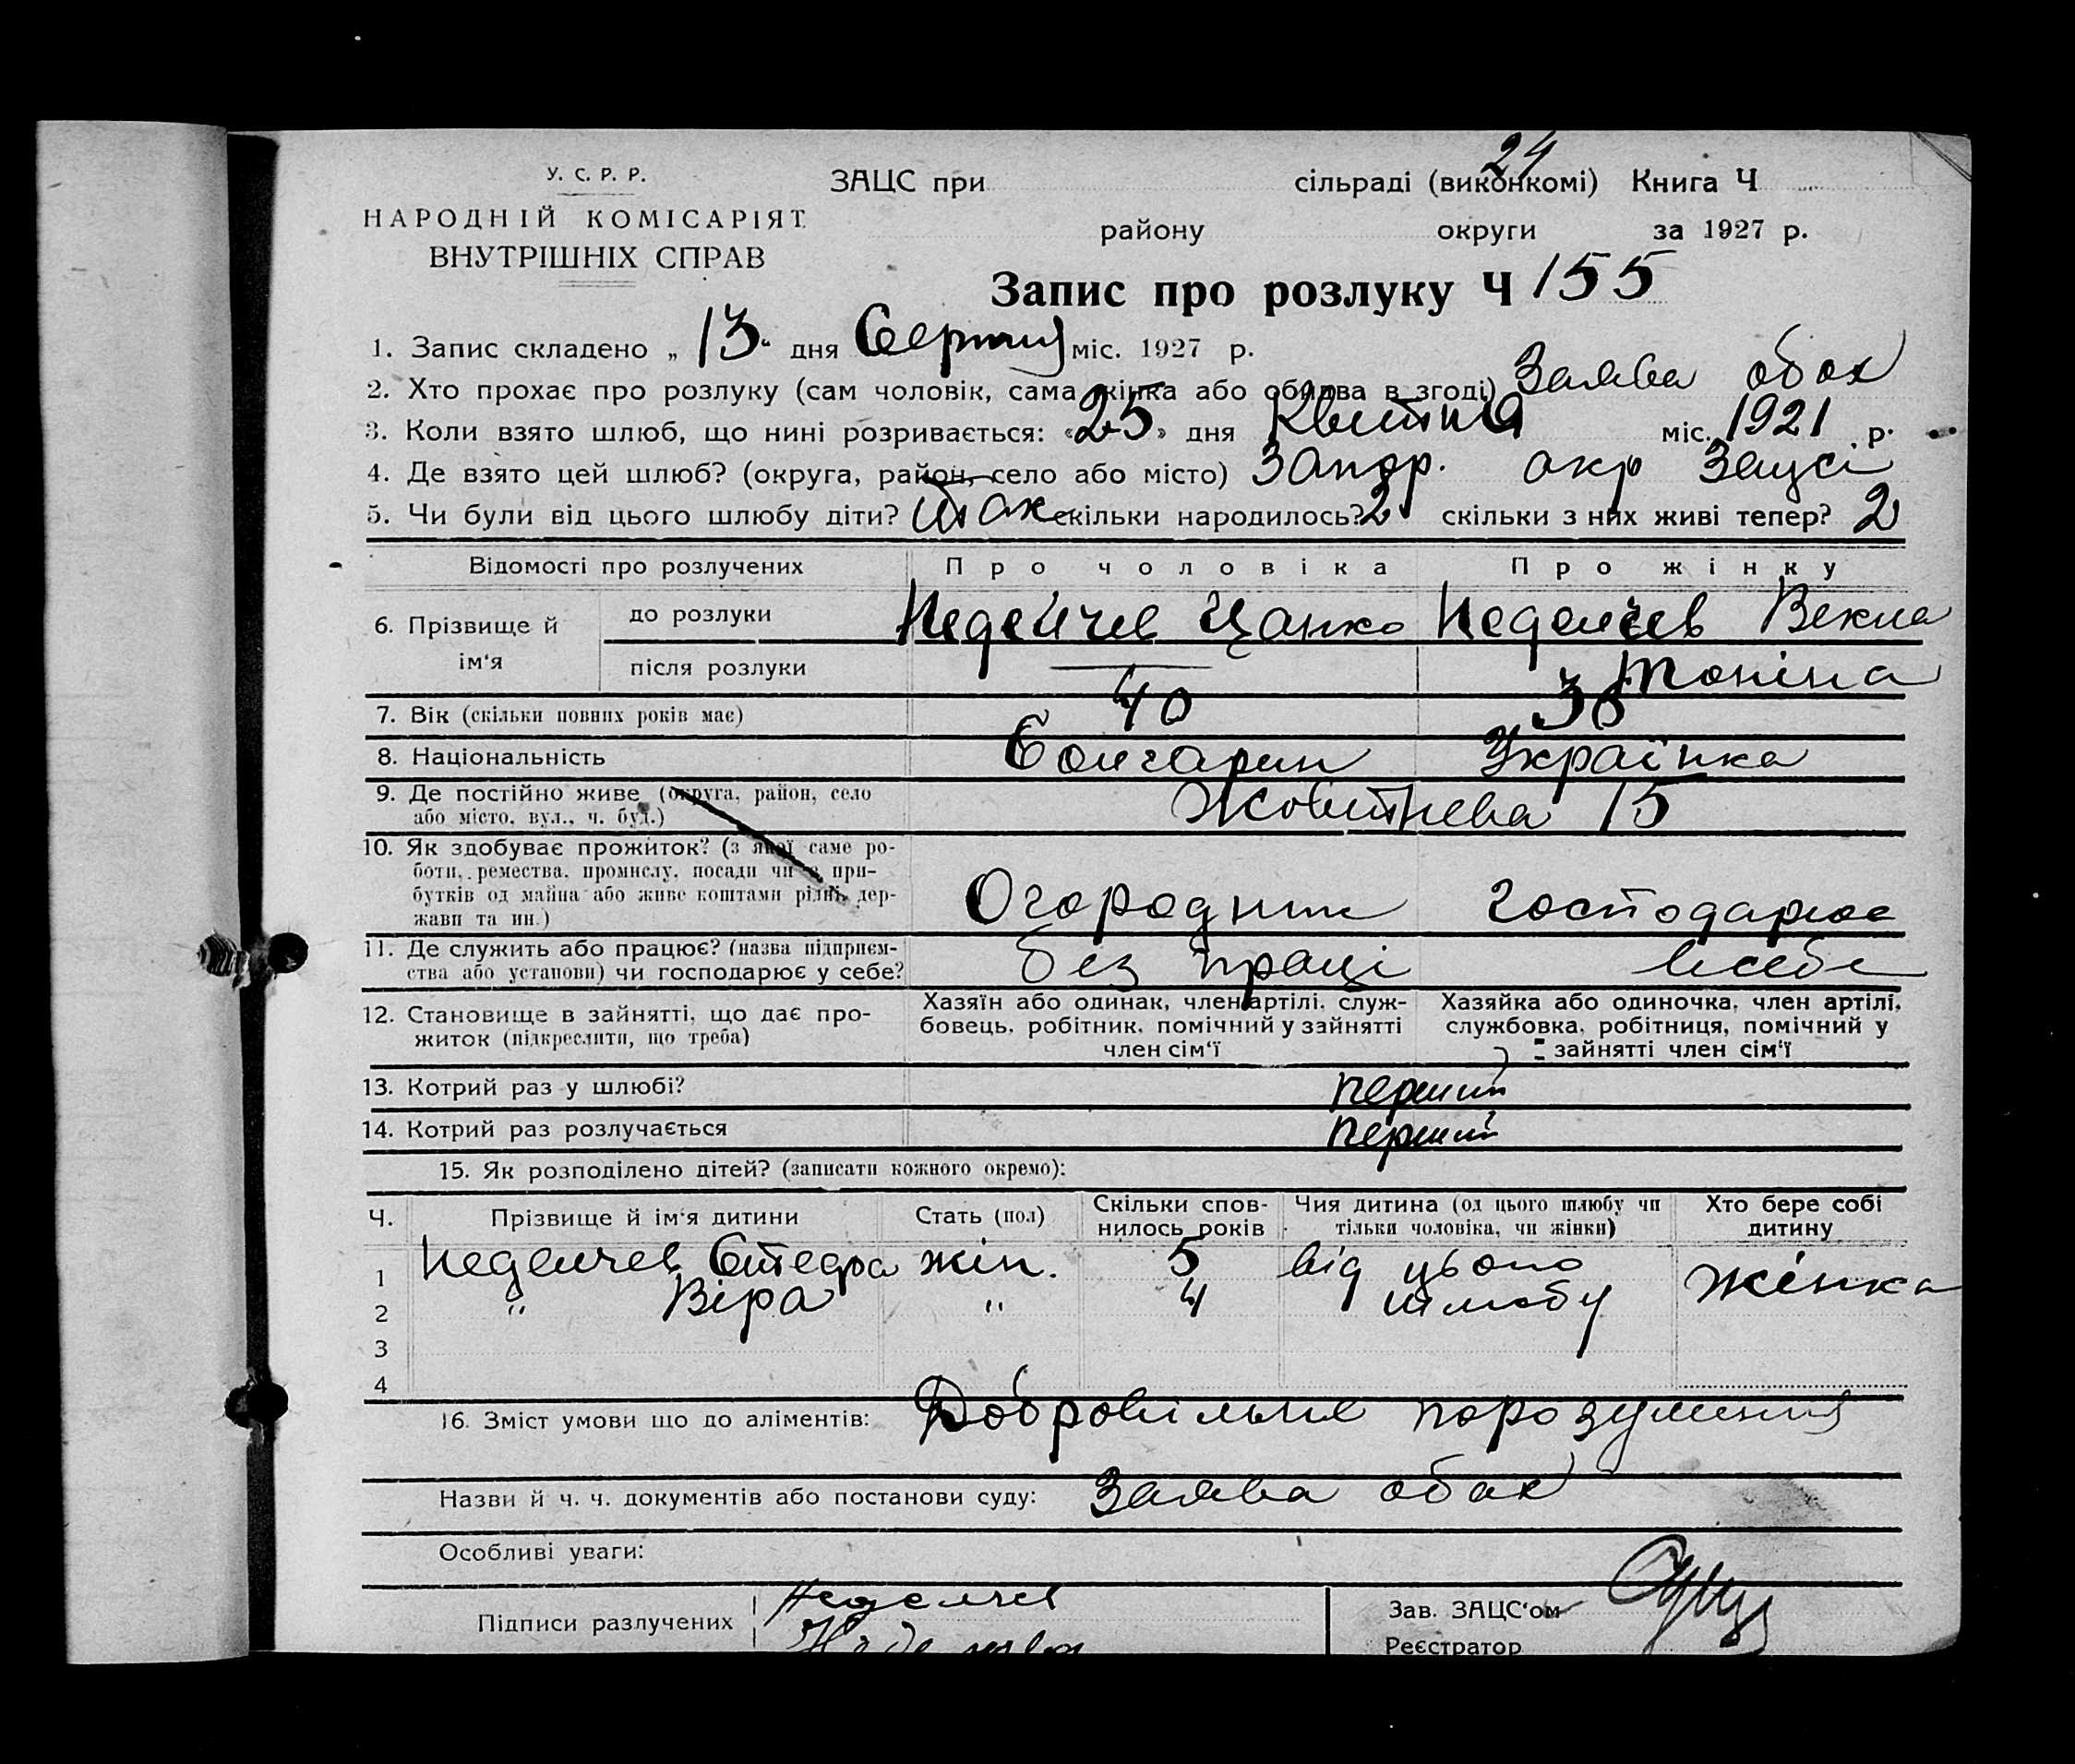 24
У. С. Р. Р.
ЗАЦС при сільраді (виконкомі) Книга Ч
НАРОДНІЙ КОМІСАРІЯТ
району округи за 1927 р.
ВНУТРІШНІХ СПРАВ
Запис про розлуку Ч 155
1. Запис складено „ 13 “ дня Серпня міс. 1927 р.
2. Хто прохає про розлуку (сам чоловік, сама жінка або обидва в згоді) Заява обох
3. Коли взято шлюб, що нині розривається: « 25 » дня Квітня міс. 1921 р.
4. Де взято цей шлюб? (округа, район, село або місто) Запор. окр Зацсі
5. Чи були від цього шлюбу діти? Так скільки народилось? 2 скільки з них живі тепер? 2
Відомості про розлучених Про чоловіка Про жінку
6. Прізвище й ім‘я до розлуки Неделчев Цанко Неделчев Векла
після розлуки — Тоніна
7. Вік (скільки повних років має) 40 30
8. Національність Болгарин Українка
9. Де постійно живе (округа, район, село
або місто, вул., ч. буд.) Жовтнева 15
10. Як здобуває прожиток? (з якої саме ро-
боти, ремества, промислу, посади чи з при-
бутків од майна або живе коштами рідні, дер-
жави та ин.) Огородник господарює
11. Де служить або працює? (назва підприєм-
ства або установи) чи господарює у себе? без праці всебе
12. Становище в зайнятті, що дає про-
житок (підкреслити, що треба)
Хазяїн або одинак, член артілі, служ-
бовець, робітник, помічний у зайнятті
член сім‘ї
Хазяйка або одиночка, член артілі,
службовка, робітниця, помічний у
зайнятті член сім‘ї
13. Котрий раз у шлюбі? перший
14. Котрий раз розлучається перший
15. Як розподілено дітей? (записати кожного окремо):
Ч. Прізвище й ім‘я дитини Стать (пол) Скільки спов-
нилось років Чия дитина (од цього шлюбу чи
тільки чоловіка, чи жінки) Хто бере собі
дитину
1 Неделчев Стефа жін. 5 від цього Жінка
2 " Віра " 4 шлюбу
3
4
16. Зміст умови що до аліментів: Добровільне порозуміння
Назви й ч. ч. документів або постанови суду: Заява обох
Особливі уваги:
Підписи разлучених Неделчев
Зав. ЗАЦС‘ом
Реєстратор